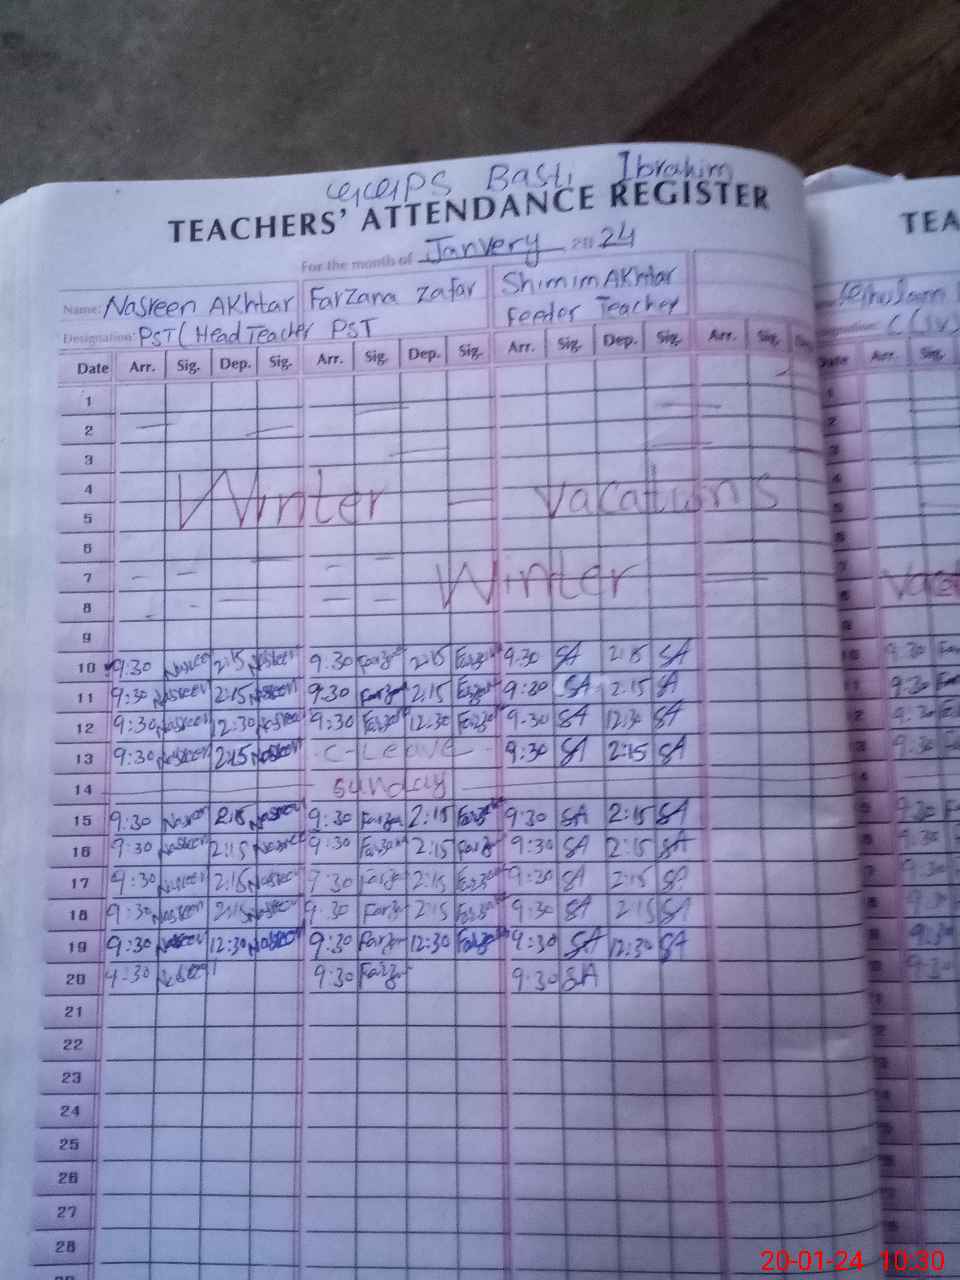 GGPS Basti Ibrahim
TEACHERS' ATTENDANCE REGISTER
For the month of Janvery 20 24
Name: Nasreen Akhtar Farzana Zafar Shimim Akhtar
Designation: PST (Head Teacher PST Feeder Teacher
Date Arr. Sig. Dep. Sig. Arr. Sig. Dep. Sig. Arr. Sig. Dep. Sig. Arr. Sig.
1
2
3
4 Winter - vacations
5
6
7 Winter
8
9
10 9:30 Nasreen 2:15 Nasreen 9:30 Farzan 2:15 Farzan 9:30 SA 2:15 SA
11 9:30 Nasreen 2:15 Nasreen 9:30 Farzan 2:15 Farzan 9:30 SA 2:15 SA
12 9:30 Nasreen 12:30 Nasreen 9:30 Farzan 12:30 Farzan 9:30 SA 12:30 SA
13 9:30 Nasreen 2:15 Nasreen C-Leave 9:30 SA 2:15 SA
14 Sunday
15 9:30 Nasreen 2:15 Nasreen 9:30 Farzan 2:15 Farzan 9:30 SA 2:15 SA
16 9:30 Nasreen 2:15 Nasreen 9:30 Farzan 2:15 Farzan 9:30 SA 2:15 SA
17 9:30 Nasreen 2:15 Nasreen 9:30 Farzan 2:15 Farzan 9:30 SA 2:15 SA
18 9:30 Nasreen 2:15 Nasreen 9:30 Farzan 2:15 Farzan 9:30 SA 2:15 SA
19 9:30 Nasreen 12:30 Nasreen 9:30 Farzan 12:30 Farzan 9:30 SA 12:30 SA
20 9:30 Nasreen 9:30 Farzan 9:30 SA
21
22
23
24
25
26
27
28
TEA
Date Arr. Sig.
20-01-24 10:30